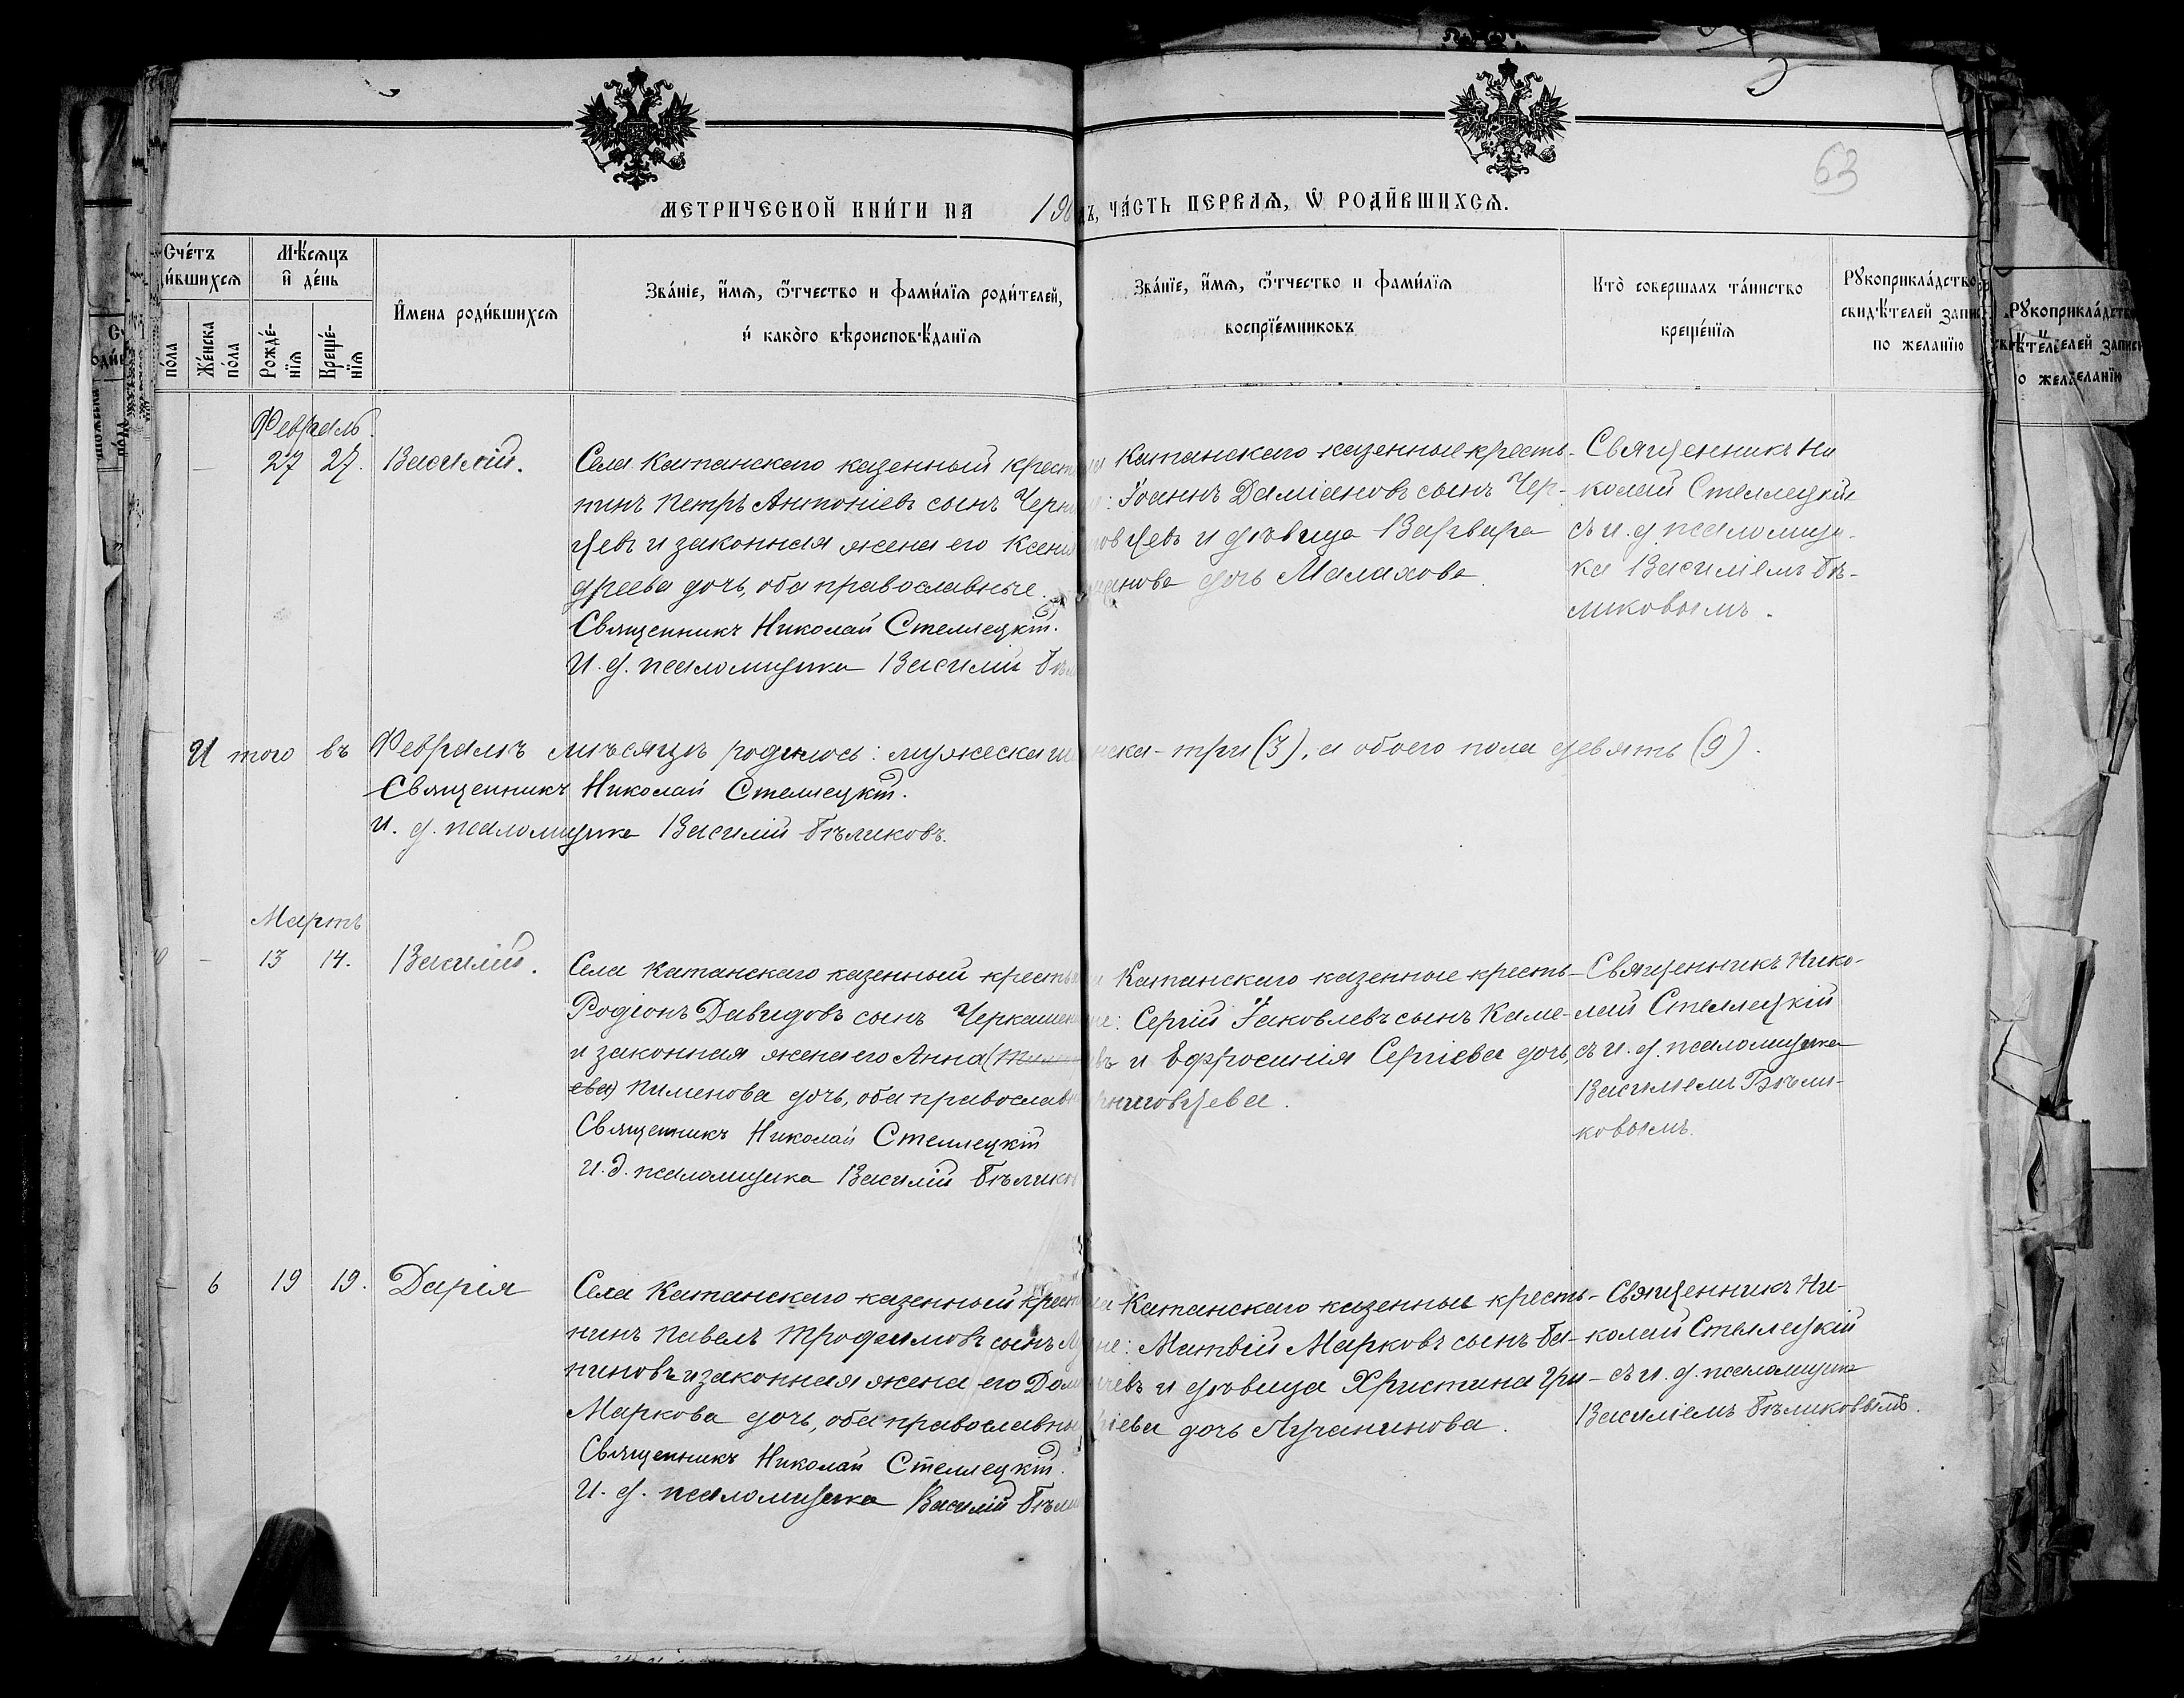 63
МЕТРИЧЕСКОЙ КНИ́ГИ НА 190
ЧА́СТЬ ПЕРВАѦ, Ѡ҆ РОДИ́ВШИХСѦ.
Сче́тъ
и́вшихсѧ
по́ла
Же́нска по́ла
Мѣ́сѧцъ и҆ де́нь
Рожде́нїѧ
Креще́нїѧ
И҆мена роди́вшихсѧ
Зва́нїе, и҆́мѧ, ѻ҆́тчество и фами́лїѧ роди́телей,
и҆ како́го вѣроисповѣ́данїѧ
Зва́нїе, и҆́мѧ, ѻ҆́тчество и фами́лїѧ
воспрїе́мниковъ
Кто̀ соверша́лъ та́инство
креще́нїѧ
Рꙋкоприкла́дство
свидѣ́телей
по жела́нїю
Февраль.
— 27 27. Василій.
Села Катанскаго казенный крест
нинъ Петръ Антоніевъ сынъ Черни
цевъ и законная жена его Ксені
дреева дочь, оба православные.
Священникъ Николай Стеллецкій.
И. д. псаломщика Василій Бѣл
Катанскаго казенные кресть-
: Іоаннъ Даміановъ сынъ Чер-
новцевъ и дѣвица Варвара
анова дочь Малахова.
Священникъ Ни
колай Стеллецкій
съ и. д. псаломщи-
ка Василіемъ Бѣ-
ликовымъ.
И того въ Февралѣ мѣсяцѣ родилось: мужеска
нска - три (3), а обоего пола девять (9).
Священникъ Николай Стеллецкій.
И. д. псаломщика Василій Бѣликовъ.
Мартъ
— 13 14. Василій.
Села Катанскаго казенный крестья
Родіонъ Давидовъ сынъ Черкашен
и законная жена его Анна (
ева) Пименова дочь, оба православн
Священникъ Николай Стеллецкій
И. д. псаломщика Василій Бѣлико
Катанскаго казенные кресть-
не: Сергій Іаковлевъ сынъ Каме-
въ и Ефросинія Сергіева дочь,
рниговцева.
Священникъ Нико-
лай Стеллецкій
съ и. д. псаломщика
Василіемъ Бѣли-
ковымъ.
— 6 19 19. Дарія
Села Катанскаго казенный крест
нинъ Павелъ Трофимовъ сынъ Лу
ниновъ и законная жена его Дом
Маркова дочь, оба православны
Священникъ Николай Стеллецкій.
И. д. псаломщика Василій Бѣли
Катанскаго казенные кресть-
не: Матвій Марковъ сынъ Бѣ-
чевъ и дѣвица Христина Гри-
ріева дочь Лучанинова.
Священникъ Ни-
колай Стеллецкій
съ и. д. псаломщика
Василіемъ Бѣликовымъ.